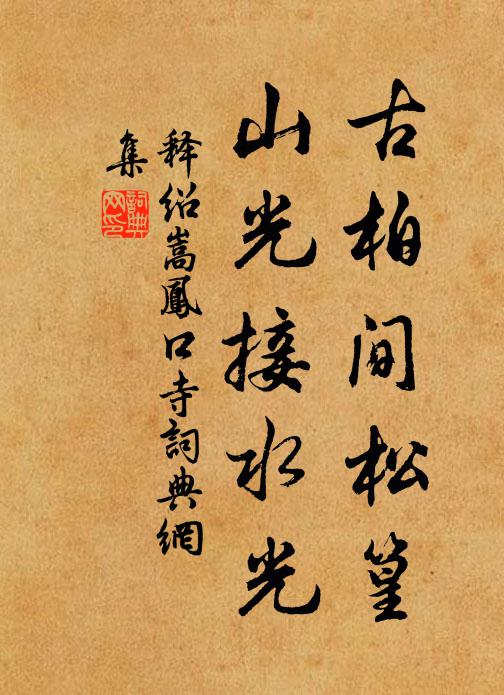 古柏間松篁
山光接水光
释绍嵩鳳口寺詞典網
集
詞典网印